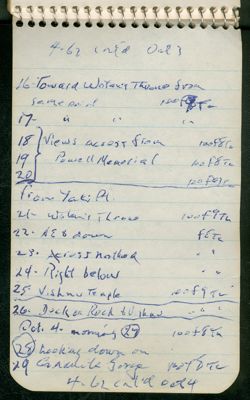 4-62 cont'd Oct 3
16 Toward Wotan's Throne from
same point 100f9 Ta
17- " " "
18 Views across from 100f8 Ta
19 Powell Memorial 100f8 Ta
20 100f8 Ta
from Yaki Pt.
21- Wotan's Throne 100f9 Ta
22- down f8 Ta
23- " "
24- Right below " "
25- Vishnu Temple 100f9 Ta
26- Rock " "
Oct. 4- morning 27 100f8 Ta
28 Looking down on
29 Granite Gorge Ta
4-62 cont'd Oct 4